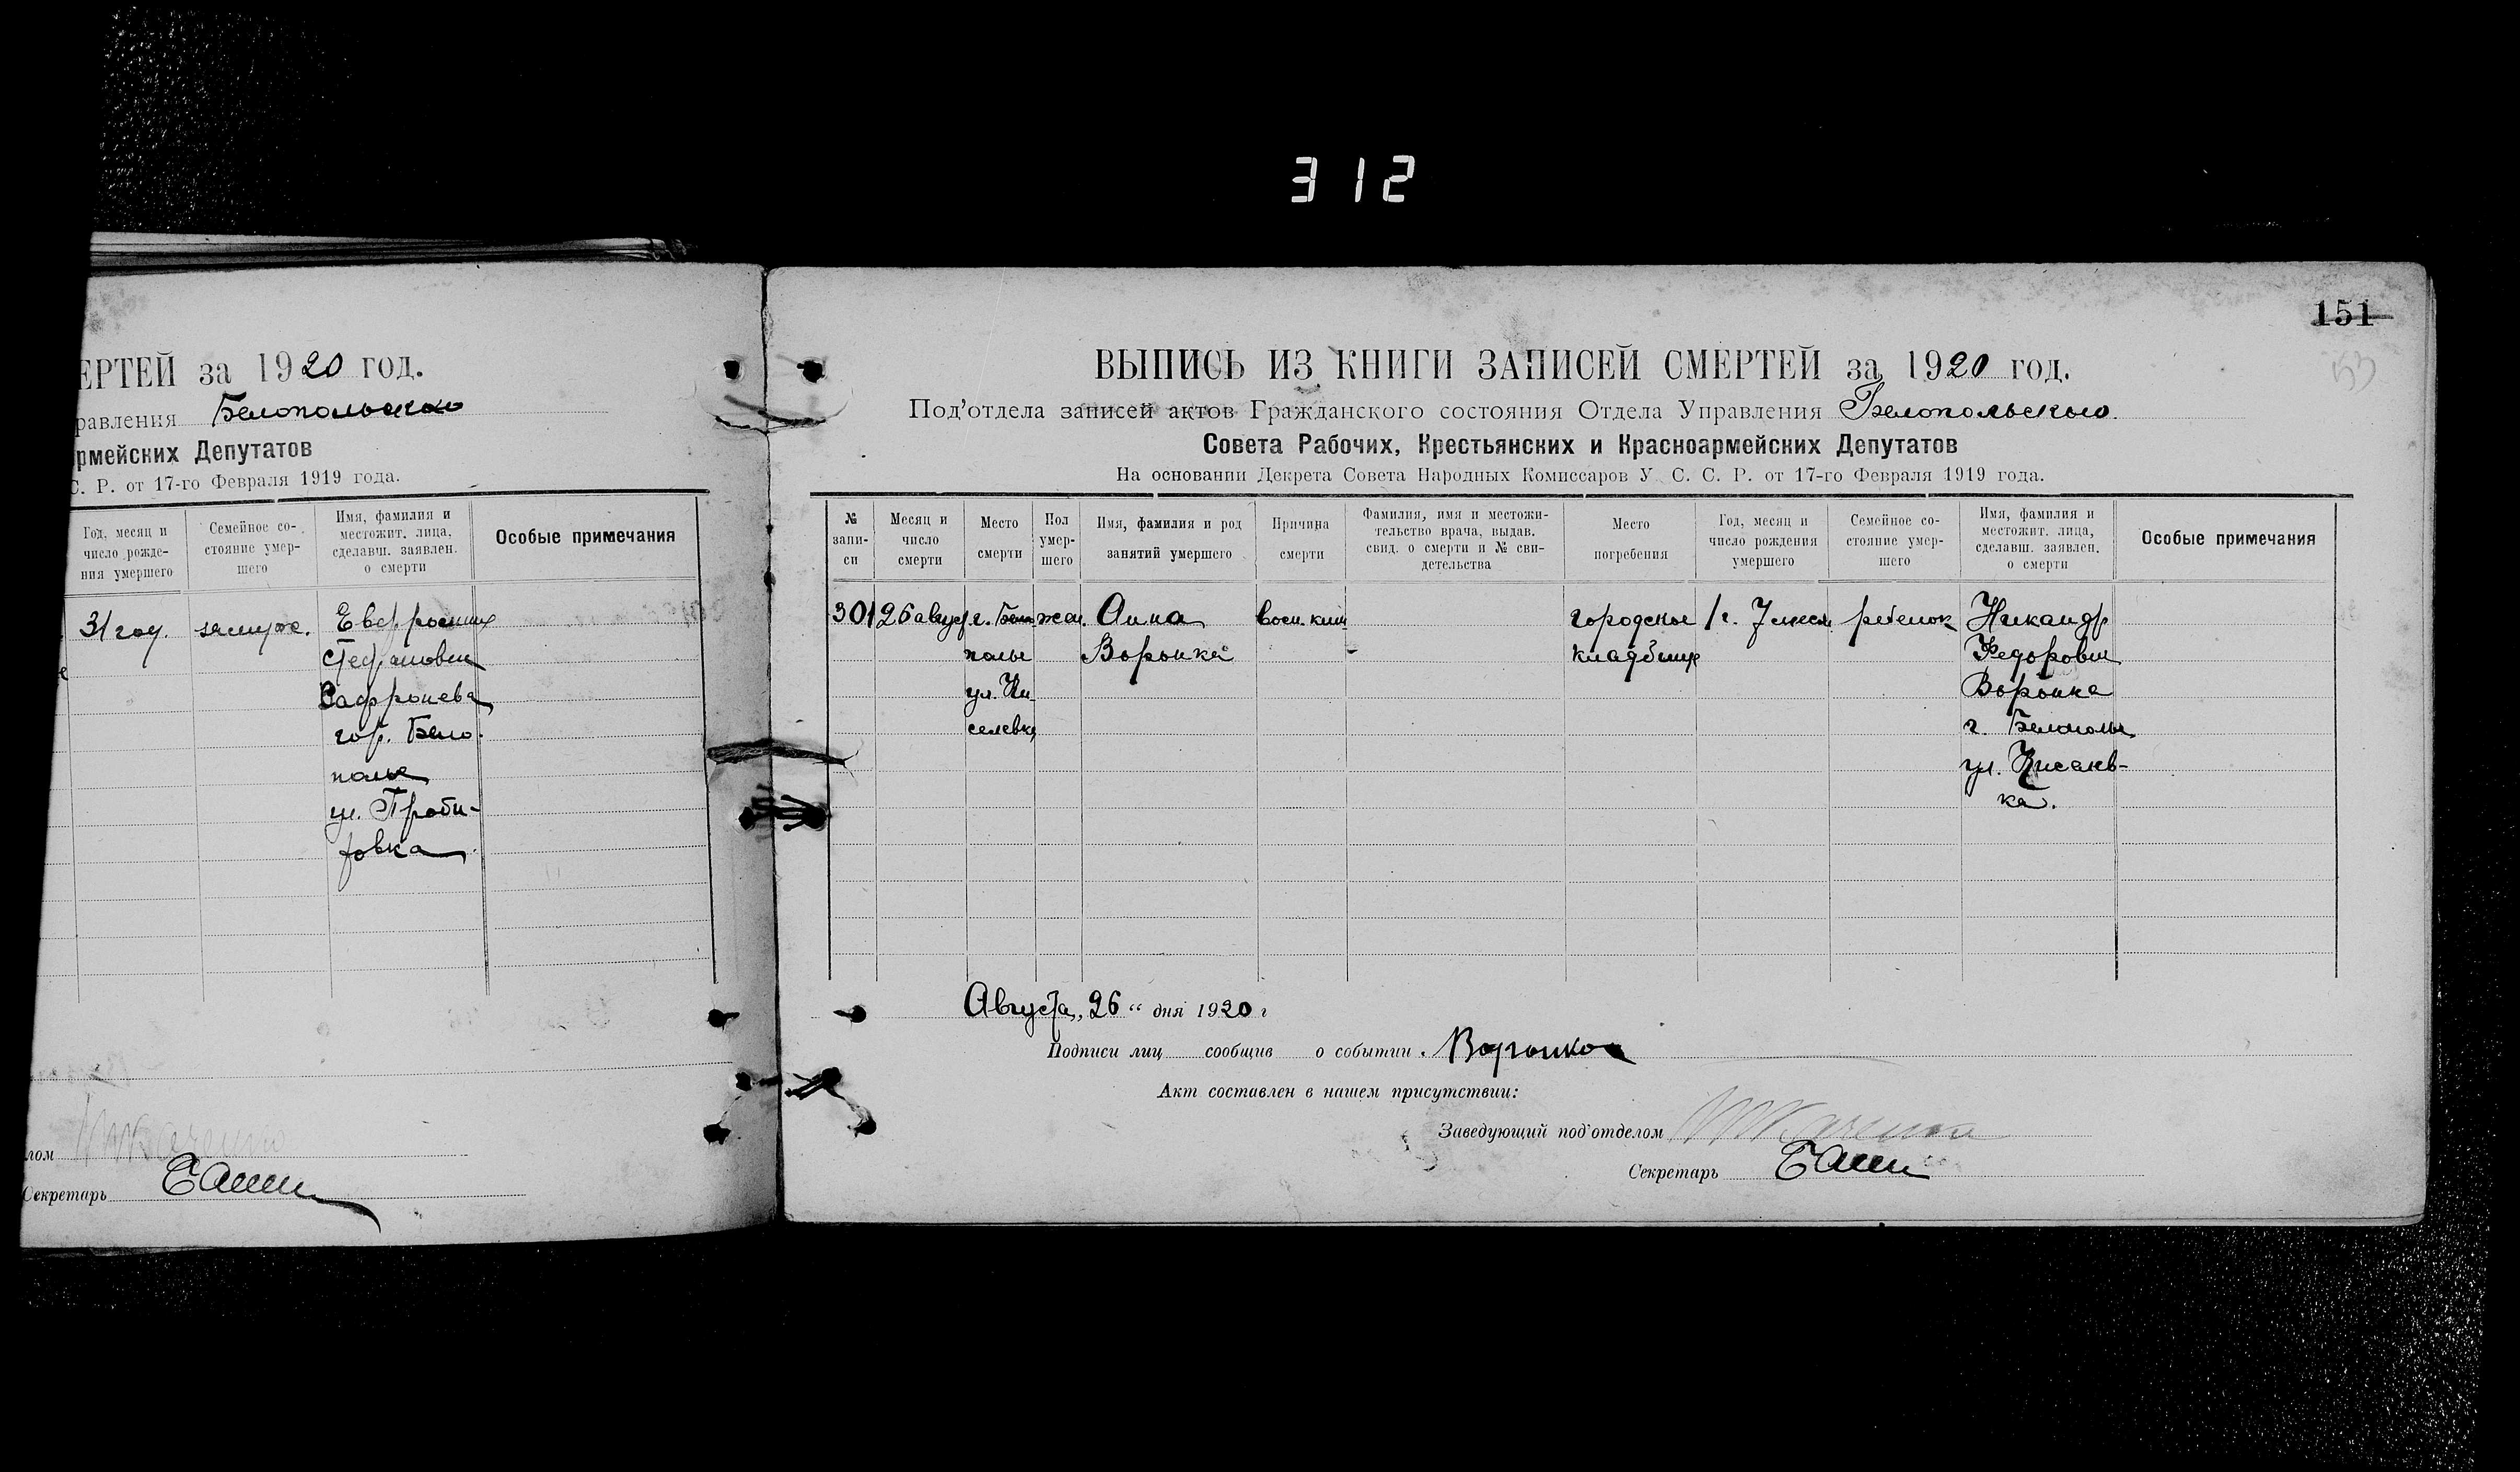 312
ЕРТЕЙ за 1920 год.
равления Белопольского
рмейских Депутатов
С. Р. от 17-го Февраля 1919 года.
Год, месяц и число рождения умершего
Семейное состояние умершего
Имя, фамилия и местожит. лица, сделавш. заявлен. о смерти
Особые примечания
31 год. замуж.
Стефановна
гор. Бело-
полье
ул.
Секретарь
151
53
ВЫПИСЬ ИЗ КНИГИ ЗАПИСЕЙ СМЕРТЕЙ за 1920 год.
Под'отдела записей актов Гражданского состояния Отдела Управления Белопольского
Совета Рабочих, Крестьянских и Красноармейских Депутатов
На основании Декрета Совета Народных Комиссаров У. С. С. Р. от 17-го Февраля 1919 года.
№ запи-си
Месяц и число смерти
Место смерти
Пол умер-шего
Имя, фамилия и род занятий умершего
Причина смерти
Фамилия, имя и местожи-тельство врача, выдав. свид. о смерти и № сви-детельства
Место погребения
Год, месяц и число рождения умершего
Семейное со-стояние умер-шего
Имя, фамилия и местожит. лица, сделавш. заявлен. о смерти
Особые примечания
301 26 август г. Бело- жен. Анна восп. киш городское 1 г. 7 месяц ребенок Никандр
полье Воронка кладбище Федорович
ул. Ки- Воронка
селевка г. Белополье
ул. Кисилев-
ка.
Августа „26“ дня 1920 г
Подписи лиц сообщив о событии. Воронков
Акт составлен в нашем присутствии:
Заведующий под'отделом
Секретарь